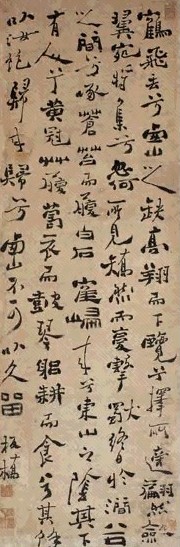 鶴飛去兮西山之缺高翔而下覽兮擇所適翻然斂
翼宛將集兮忽何所見矯然而復擊獨終日於澗谷
之間兮啄蒼苔而履白石鶴歸來兮東山之陰其下
有人兮黃冠草履葛衣而鼓琴躬耕而食兮其餘
以汝飽歸來歸兮西山不可以久留 板橋